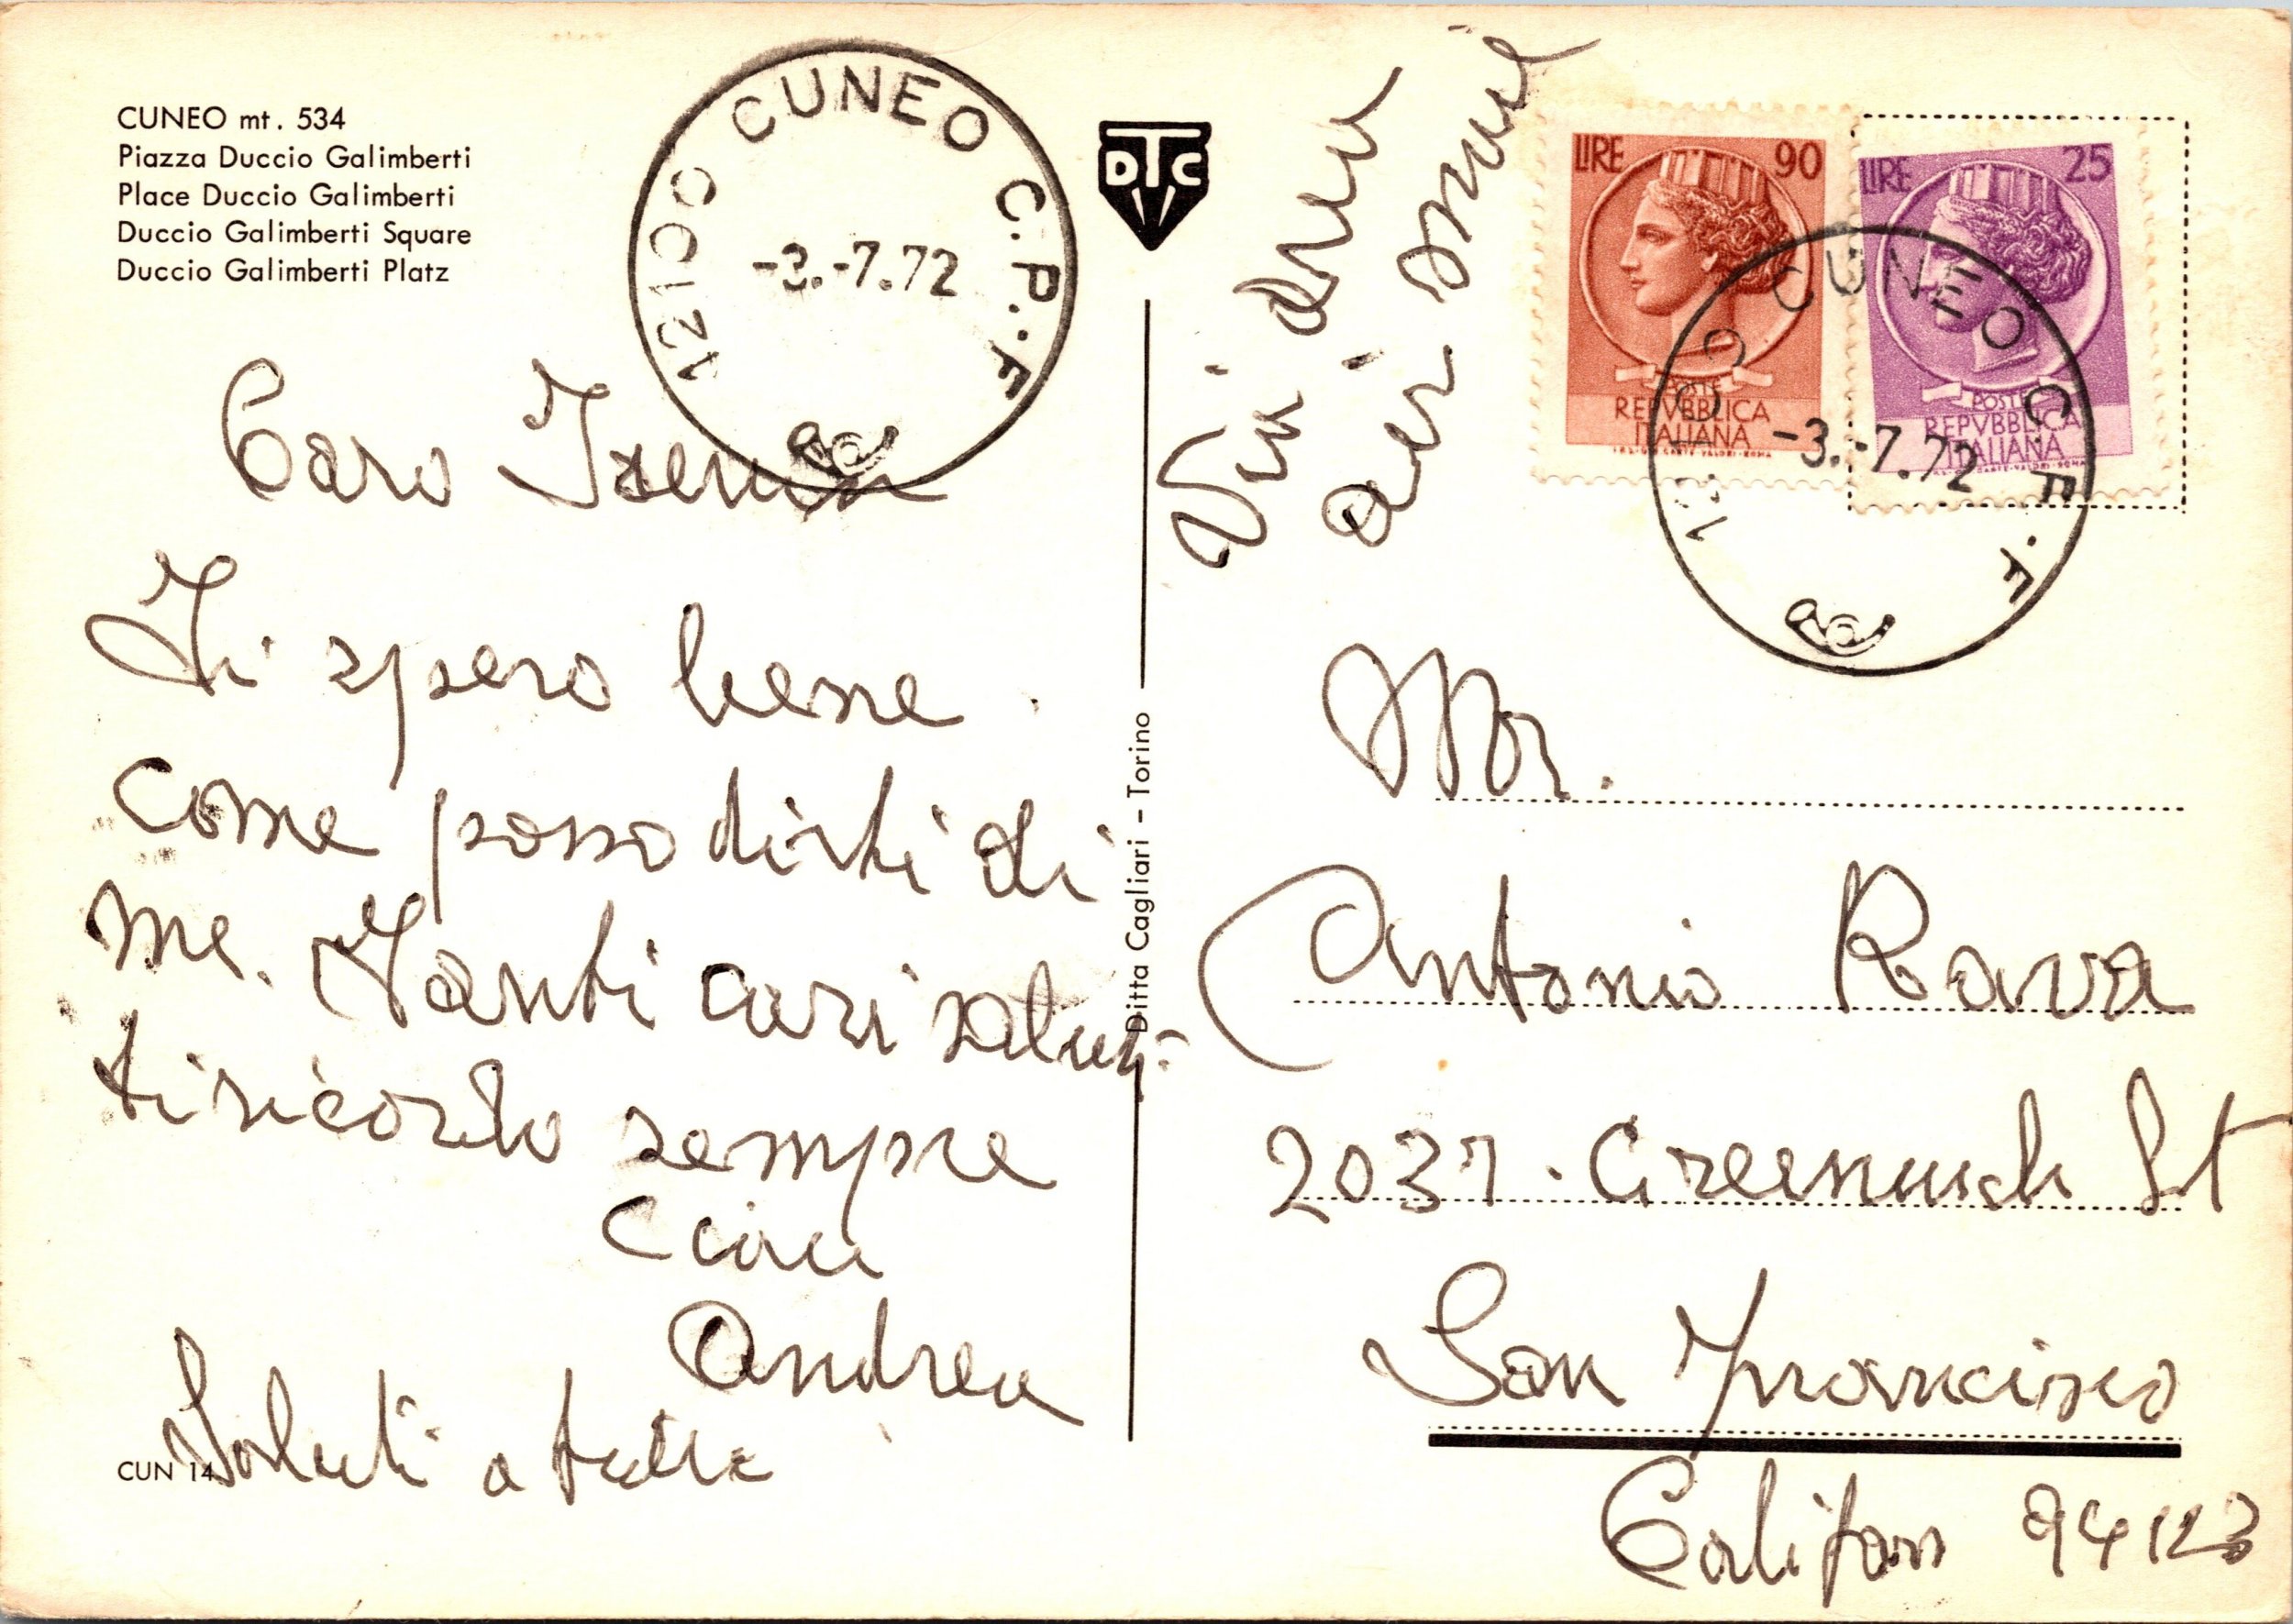 CUNEO mt. 534
Piazza Duccio Galimberti
Place Duccio Galimberti
Duccio Galimberti Square
Duccio Galimberti Platz
12100 CUNEO C.P.-F
-3.-7.72
DTC
Via aerea
air
LIRE 90
POSTE
REPVBBLICA
ITALIANA
LIRE 25
POSTE
REPVBBLICA
ITALIANA
CUNEO C.P.-F
-3.-7.72
Caro
Ti spero bene
come posso dirti di
me. Tanti cari saluti
ti ricordo sempre
Ciau
Andrea
Saluti a tutti
CUN 14
Ditta Cagliari - Torino
Mr.
Antonio Rava
2037 . Greenwich St
San Francisco
Califor 94123